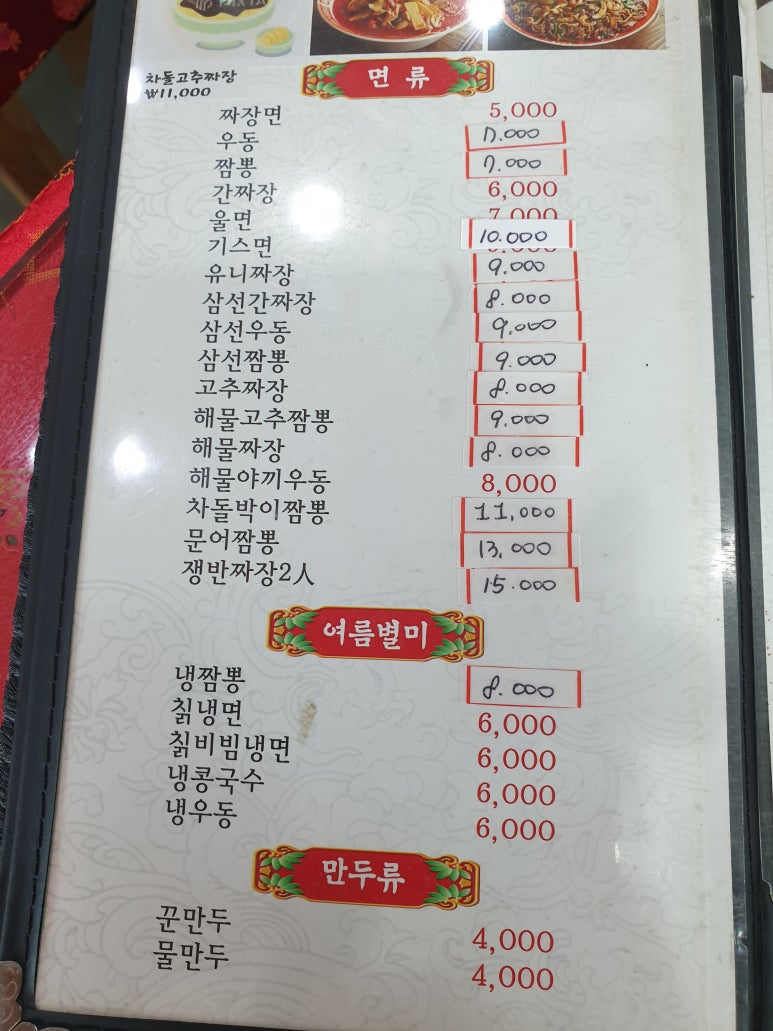 차돌고추짜장
₩11,000
면 류
짜장면 5,000
우동 7.000
짬뽕 7.000
간짜장 6,000
울면 7,000
기스면 10.000
유니짜장 9.000
삼선간짜장 8.000
삼선우동 9,000
삼선짬뽕 9.000
고추짜장 8.000
해물고추짬뽕 9.000
해물짜장 8.000
해물야끼우동 8,000
차돌박이짬뽕 11,000
문어짬뽕 13,000
쟁반짜장2人 15.000
여름별미
냉짬뽕 8.000
칡냉면 6,000
칡비빔냉면 6,000
냉콩국수 6,000
냉우동 6,000
만두류
꾼만두 4,000
물만두 4,000